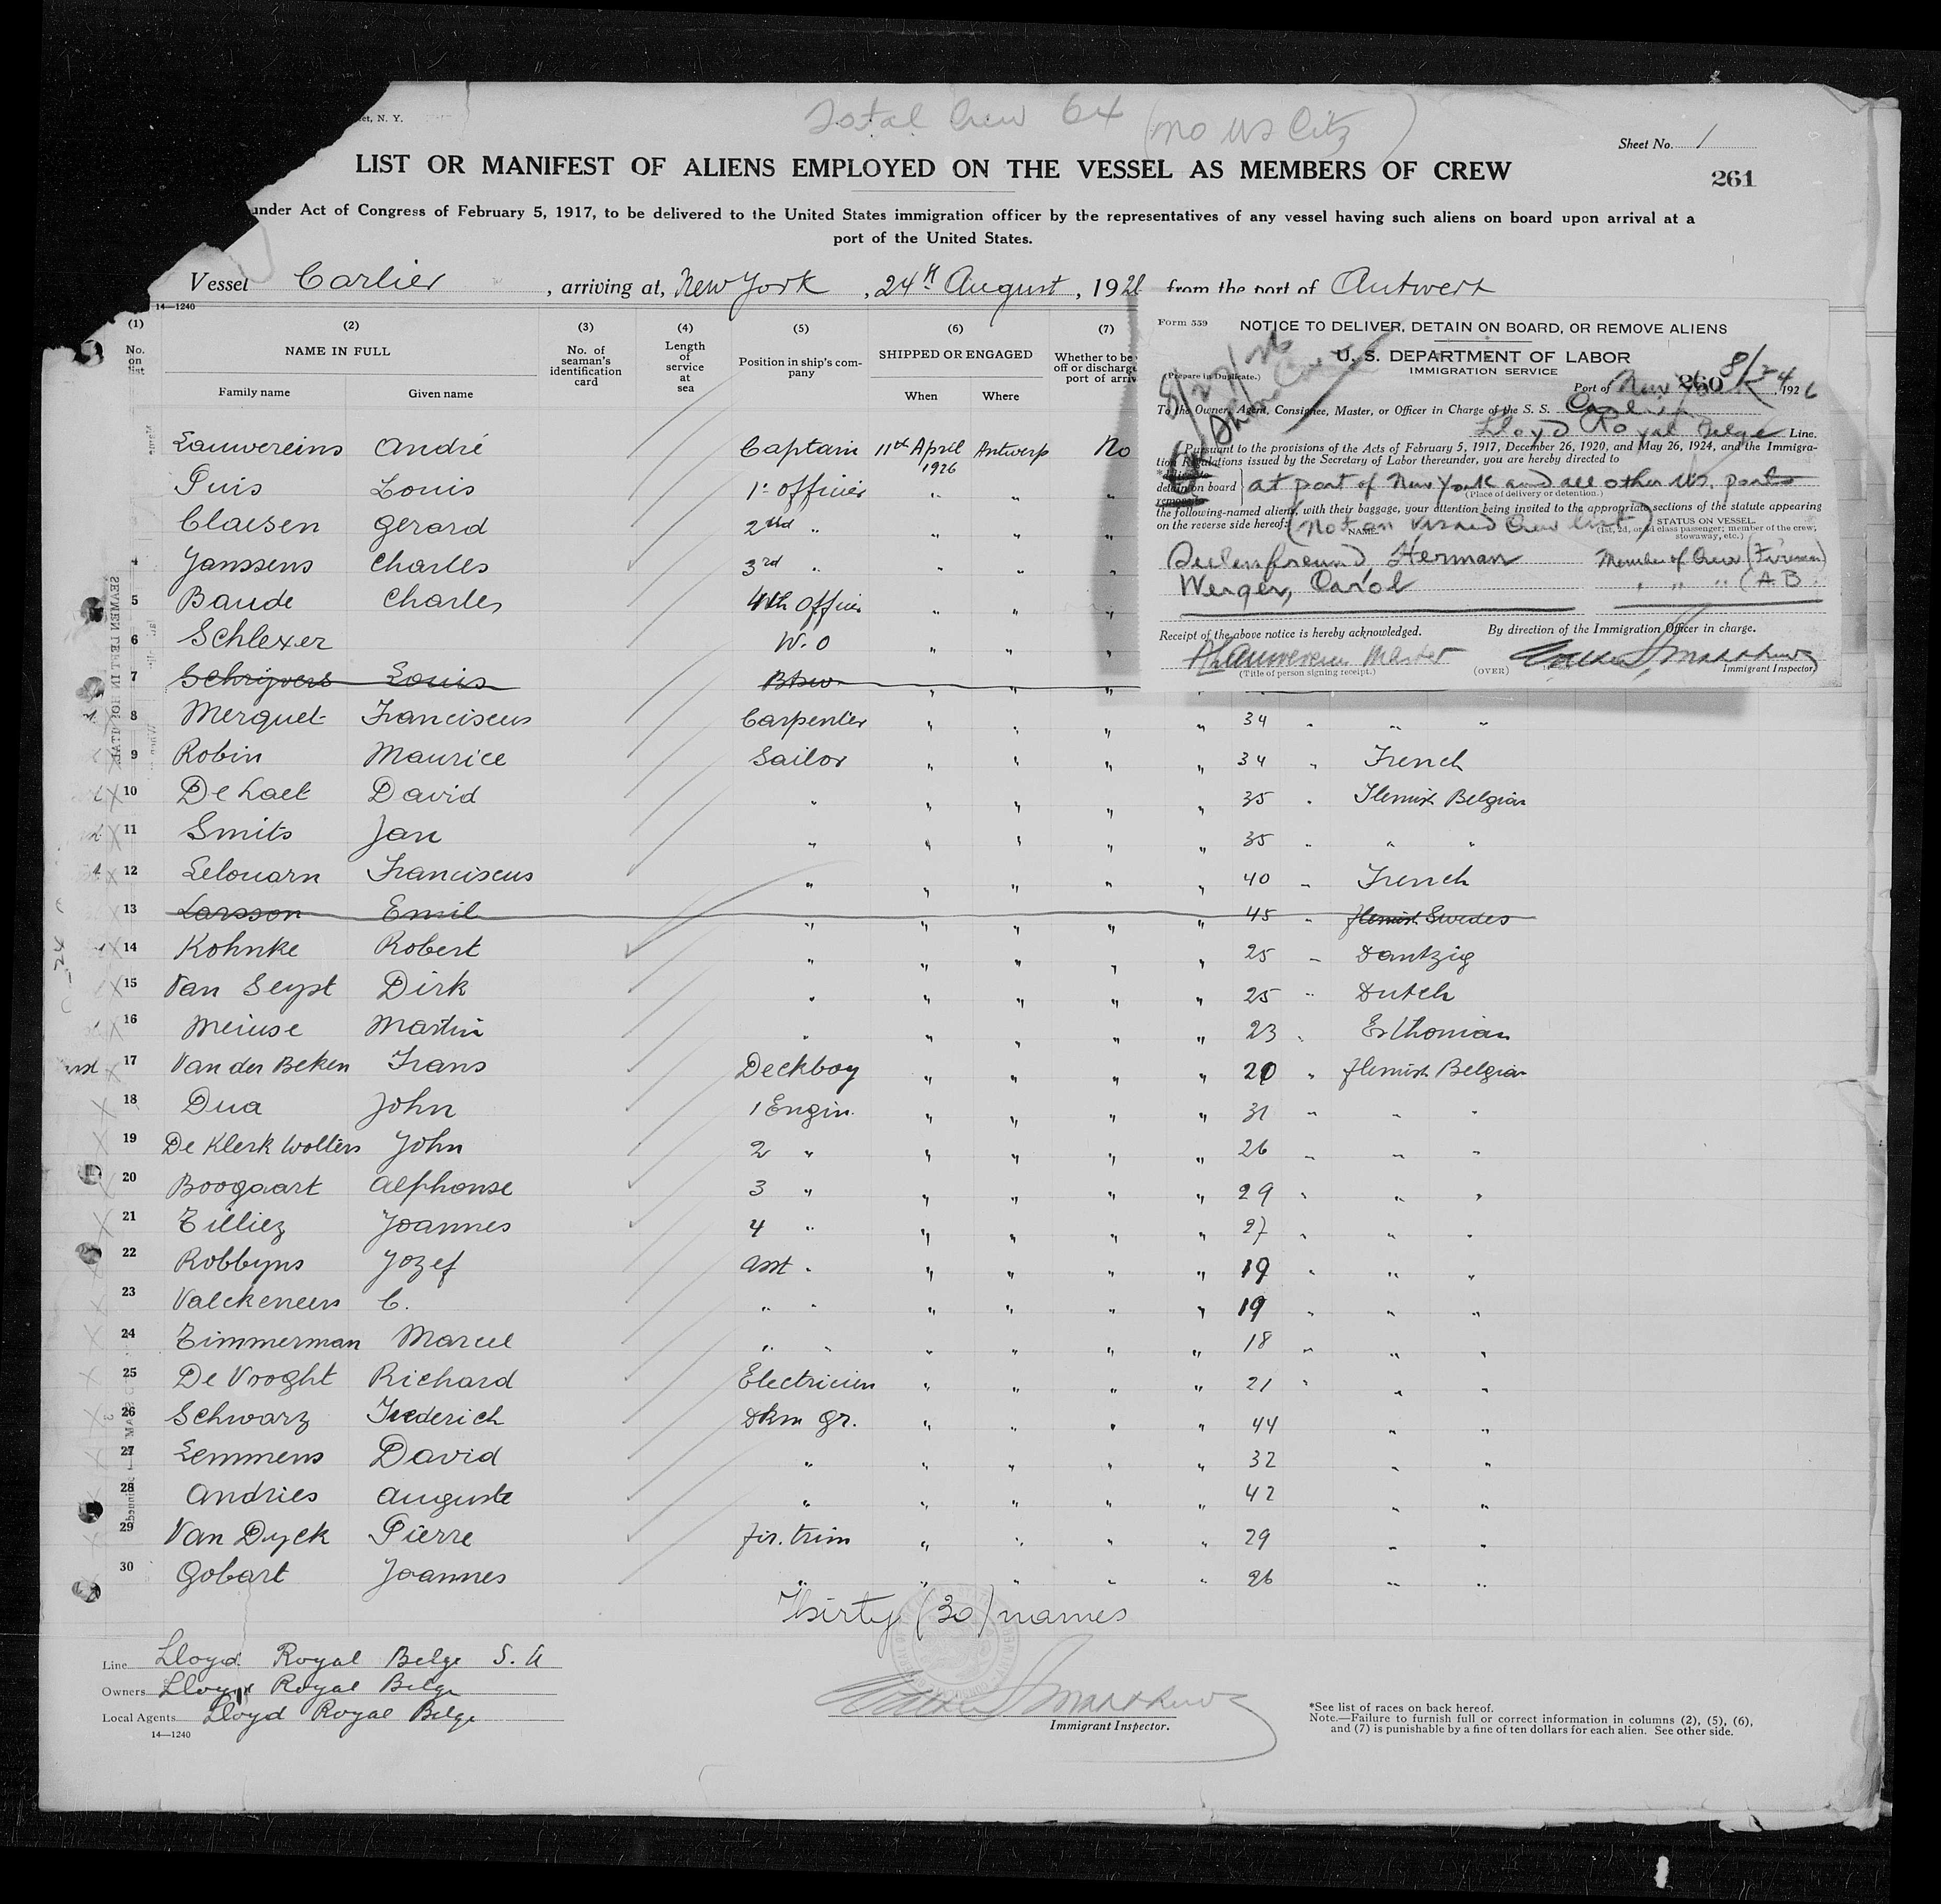 Total Crew 64 (no US Citz)
et, N. Y.
Sheet No. 1
LIST OR MANIFEST OF ALIENS EMPLOYED ON THE VESSEL AS MEMBERS OF CREW
261
under Act of Congress of February 5, 1917, to be delivered to the United States immigration officer by the representatives of any vessel having such aliens on board upon arrival at a
port of the United States.
Vessel Carlier, arriving at, New York, 24th August, 192 from the port of Antwerp
14—1240
(1) (2) (3) (4) (5) (6) (7)
No. on list
NAME IN FULL
Family name Given name
No. of seaman's identification card
Length of service at sea
Position in ship's company
SHIPPED OR ENGAGED
When Where
Whether to be
off or discharg
port of arriv
Lauwereins André Captain 11th April 1926 Antwerp No
Puis Louis 1e officier " " "
Claesen Gerard 2nd " " " "
4 Janssens Charles 3rd " " " "
5 Baude Charles 4th Officier " " "
6 Schlexer W.O " " "
7 Schrijvers Louis Btsw " " "
8 Merquet Franciscus Carpenter " " " " 34 " " "
9 Robin Maurice Sailor " " " " 34 " French
10 De Laet David " " " " " 35 " Flemish Belgian
11 Smits Jan " " " " " 35 " " "
12 Lelouarn Franciscus " " " " " 40 " French
13 Larsson Emil " " " " " 45 " Flemish Swedes
14 Kohnke Robert " " " " " 25 " Dantzig
15 Van Seyst Dirk " " " " " 25 " Dutch
16 Meiuse Martin " " " " " 23 " Esthonian
17 Van der Beken Frans Deckboy " " " " 20 " Flemish Belgian
18 Dua John 1 Engin. " " " " 31 " " "
19 De Klerk Wolters John 2 " " " " " 26 " " "
20 Boogaart Alphonse 3 " " " " " 29 " " "
21 Tilliez Joannes 4 " " " " " 27 " " "
22 Robbyns Jozef asst " " " " " 19 " " "
23 Valckeneers C. " " " " " " 19 " " "
24 Timmerman Marcel " " " " " " 18 " " "
25 De Vooght Richard Electricien " " " " 21 " " "
26 Schwarz Frederich Dkm gr. " " " " 44 " "
27 Lemmens David " " " " " 32 " "
28 Andries Auguste " " " " " 42 " "
29 Van Dyck Pierre fir. trim " " " " 29 " "
30 Gobart Joannes " " " " " 26 " "
Thirty (30) names
Form 559
NOTICE TO DELIVER, DETAIN ON BOARD, OR REMOVE ALIENS
U. S. DEPARTMENT OF LABOR
IMMIGRATION SERVICE
(Prepare in Duplicate.)
8/27/26
Port of New York 8/24, 1926
260
To the Owner, Agent, Consignee, Master, or Officer in Charge of the S. S. Carlier
Lloyd Royal Belge Line.
Pursuant to the provisions of the Acts of February 5, 1917, December 26, 1920, and May 26, 1924, and the Immigra-
tion Regulations issued by the Secretary of Labor thereunder, you are hereby directed to
detain on board at port of New York and all other U.S. ports
remove
(Place of delivery or detention.)
the following-named aliens, with their baggage, your attention being invited to the appropriate sections of the statute appearing
on the reverse side hereof: (Not on visaed Crew list)
NAME.
STATUS ON VESSEL.
(1st, 2d, or 3d class passenger; member of the crew; stowaway, etc.)
Herman Member of Crew (Fireman)
Werger, Carol " " " (A.B.
Receipt of the above notice is hereby acknowledged. By direction of the Immigration Officer in charge.
A Lauwereins Master
(Title of person signing receipt.) (OVER) Immigrant Inspector.
Line Lloyd Royal Belge S. A
Owners Lloyd Royal Belge
Local Agents Lloyd Royal Belge
14—1240
Immigrant Inspector.
*See list of races on back hereof.
Note.—Failure to furnish full or correct information in columns (2), (5), (6),
and (7) is punishable by a fine of ten dollars for each alien. See other side.